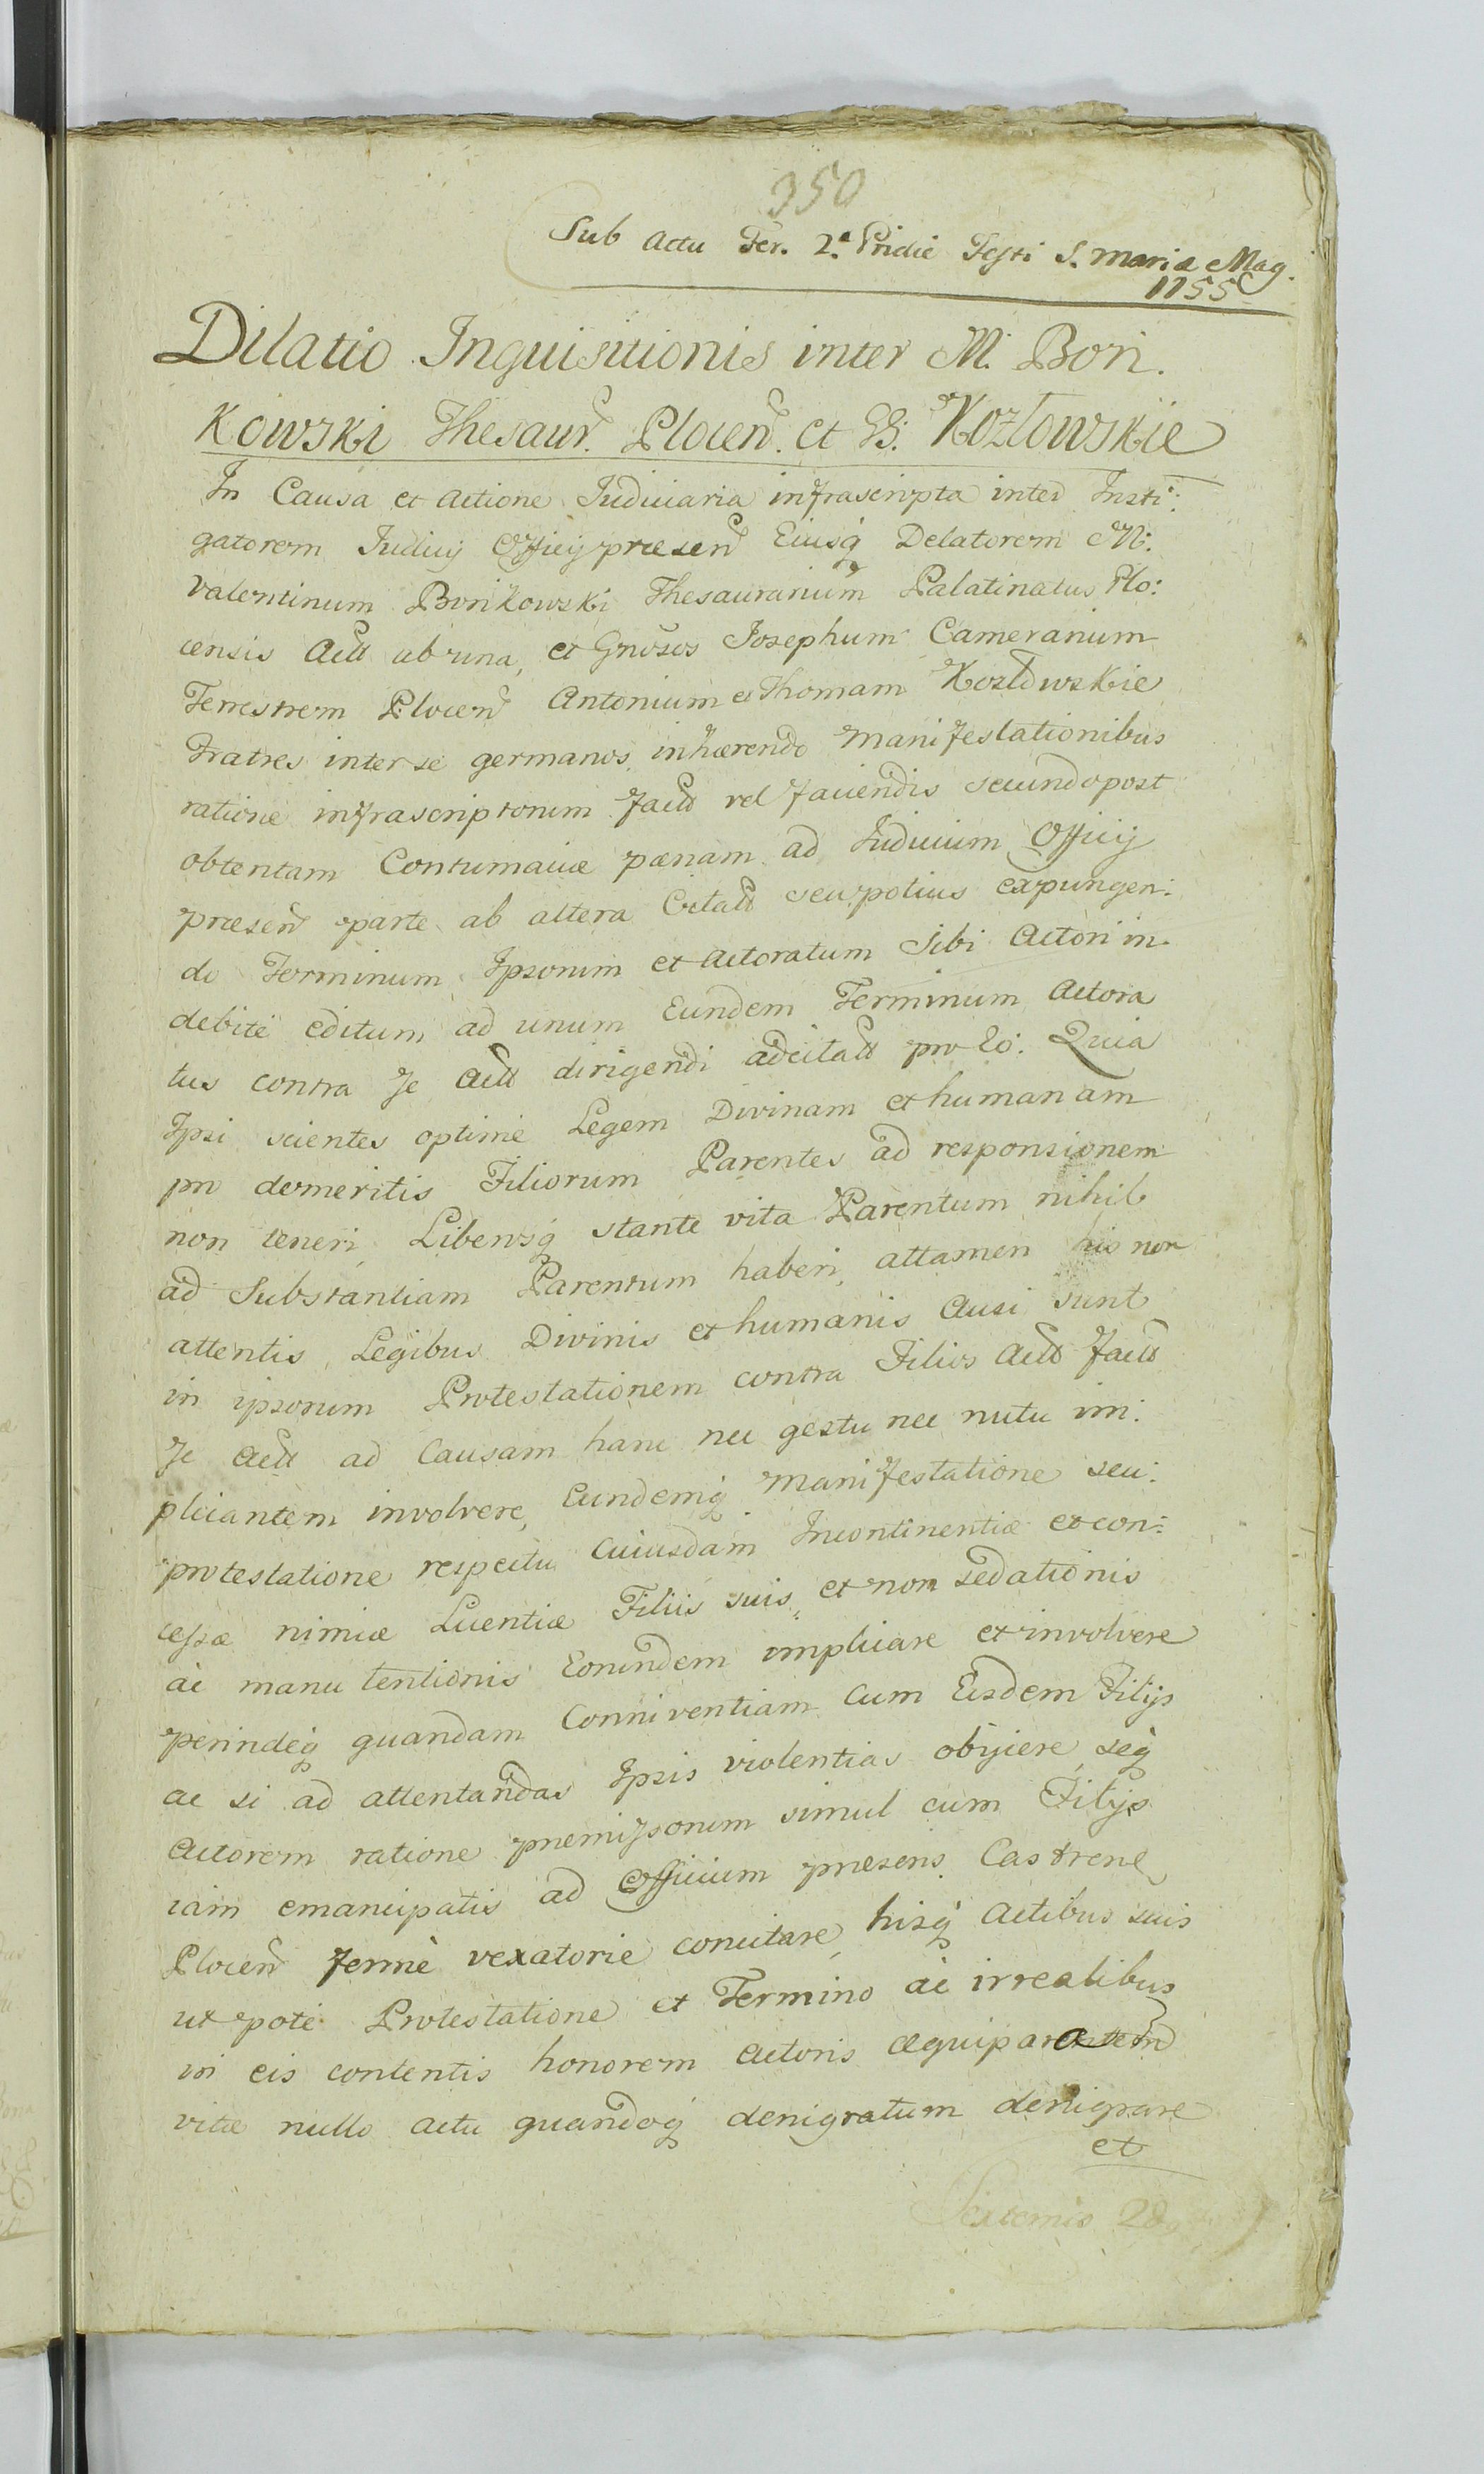 350
Sub Actu Fer. 2.a Pridie Festi S. Maria Mag.
1755
Dilatio Inquisitionis inter M. Bon.
kowski Thesaur. Plocen. et GG. Kozłowskie
In Causa et Actione Judiciaria infrascripta inter Insti:
gatorem Judicij Officij præsen Eiusq Delatorem M.
Valentinum Bonkowski Thesaurarium Palatinatus Plo:
censis Actt ab una, et Gnosos Josephum Camerarium
Terrestrem Plocen Antonium et Thomam Kozłowskie
Fratres inter se germanos inhærendo Manifestationibus
ratione infrascriptorum factt vel faciendis secundo post
obtentam Contumaciæ pænam ad Judicium Officij
præsen parte ab altera Citatt seu potius expungen:
do Terminum Ipsorum et Actoratum Sibi Actori in
debite editum ad unum Eundem Terminum Actora
tus contra se Actt dirigendi adcitatt pro Eo. Quia
Ipsi scientes optime Legem Divinam et humanam
pro demeritis Filiorum Parentes ad responsionem
non teneri Liberosq stante vita Parentum nihil
ad Substantiam Parentum haberi, attamen his non
attentis Legibus Divinis et humanis Ausi sunt
in ipsorum Protestationem contra Filios Actt factt
se Actt ad Causam hanc nec gestu nec nutu im:
plicantem involvere, Eundemq Manifestatione seu:
protestatione respectu Cuiusdam Incontinentiæ et con:
cessæ nimiæ Licentiæ Filiis suis, et non sedationis
ac manu tentionis Eorundem implicare et involvere
perindeq quandam Conniventiam cum Eisdem Filijs
ac si ad attentandas Ipsis violentias obijcere, seq
Actorem ratione præmissorum simul cum Filijs
iam emancipatis ad Officium præsens Castrene
Plocen ferme vexatorie concitare, hisq Actibus suis
ut pote Protestatione et Termino ac irrealibus
in eis contentis honorem Actoris æquiparantem
vitæ nullo actu quandoq denigratum denigrare
et